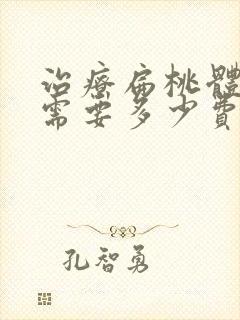 治療扁桃體
需要多少費
孔智勇